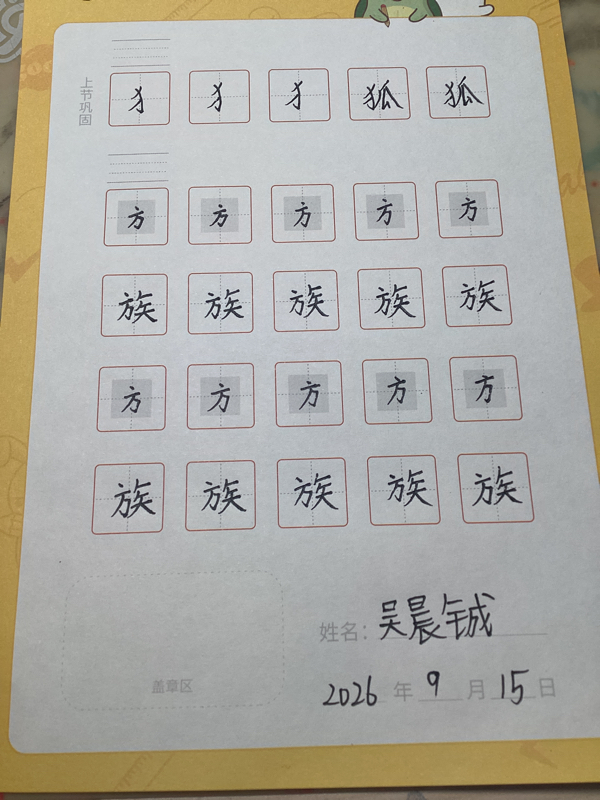 上节巩固
犭 犭 犭 狐 狐
方 方 方 方 方
族 族 族 族 族
方 方 方 方 方
族 族 族 族 族
姓名：吴晨铖
盖章区
2026 年 9 月 15 日